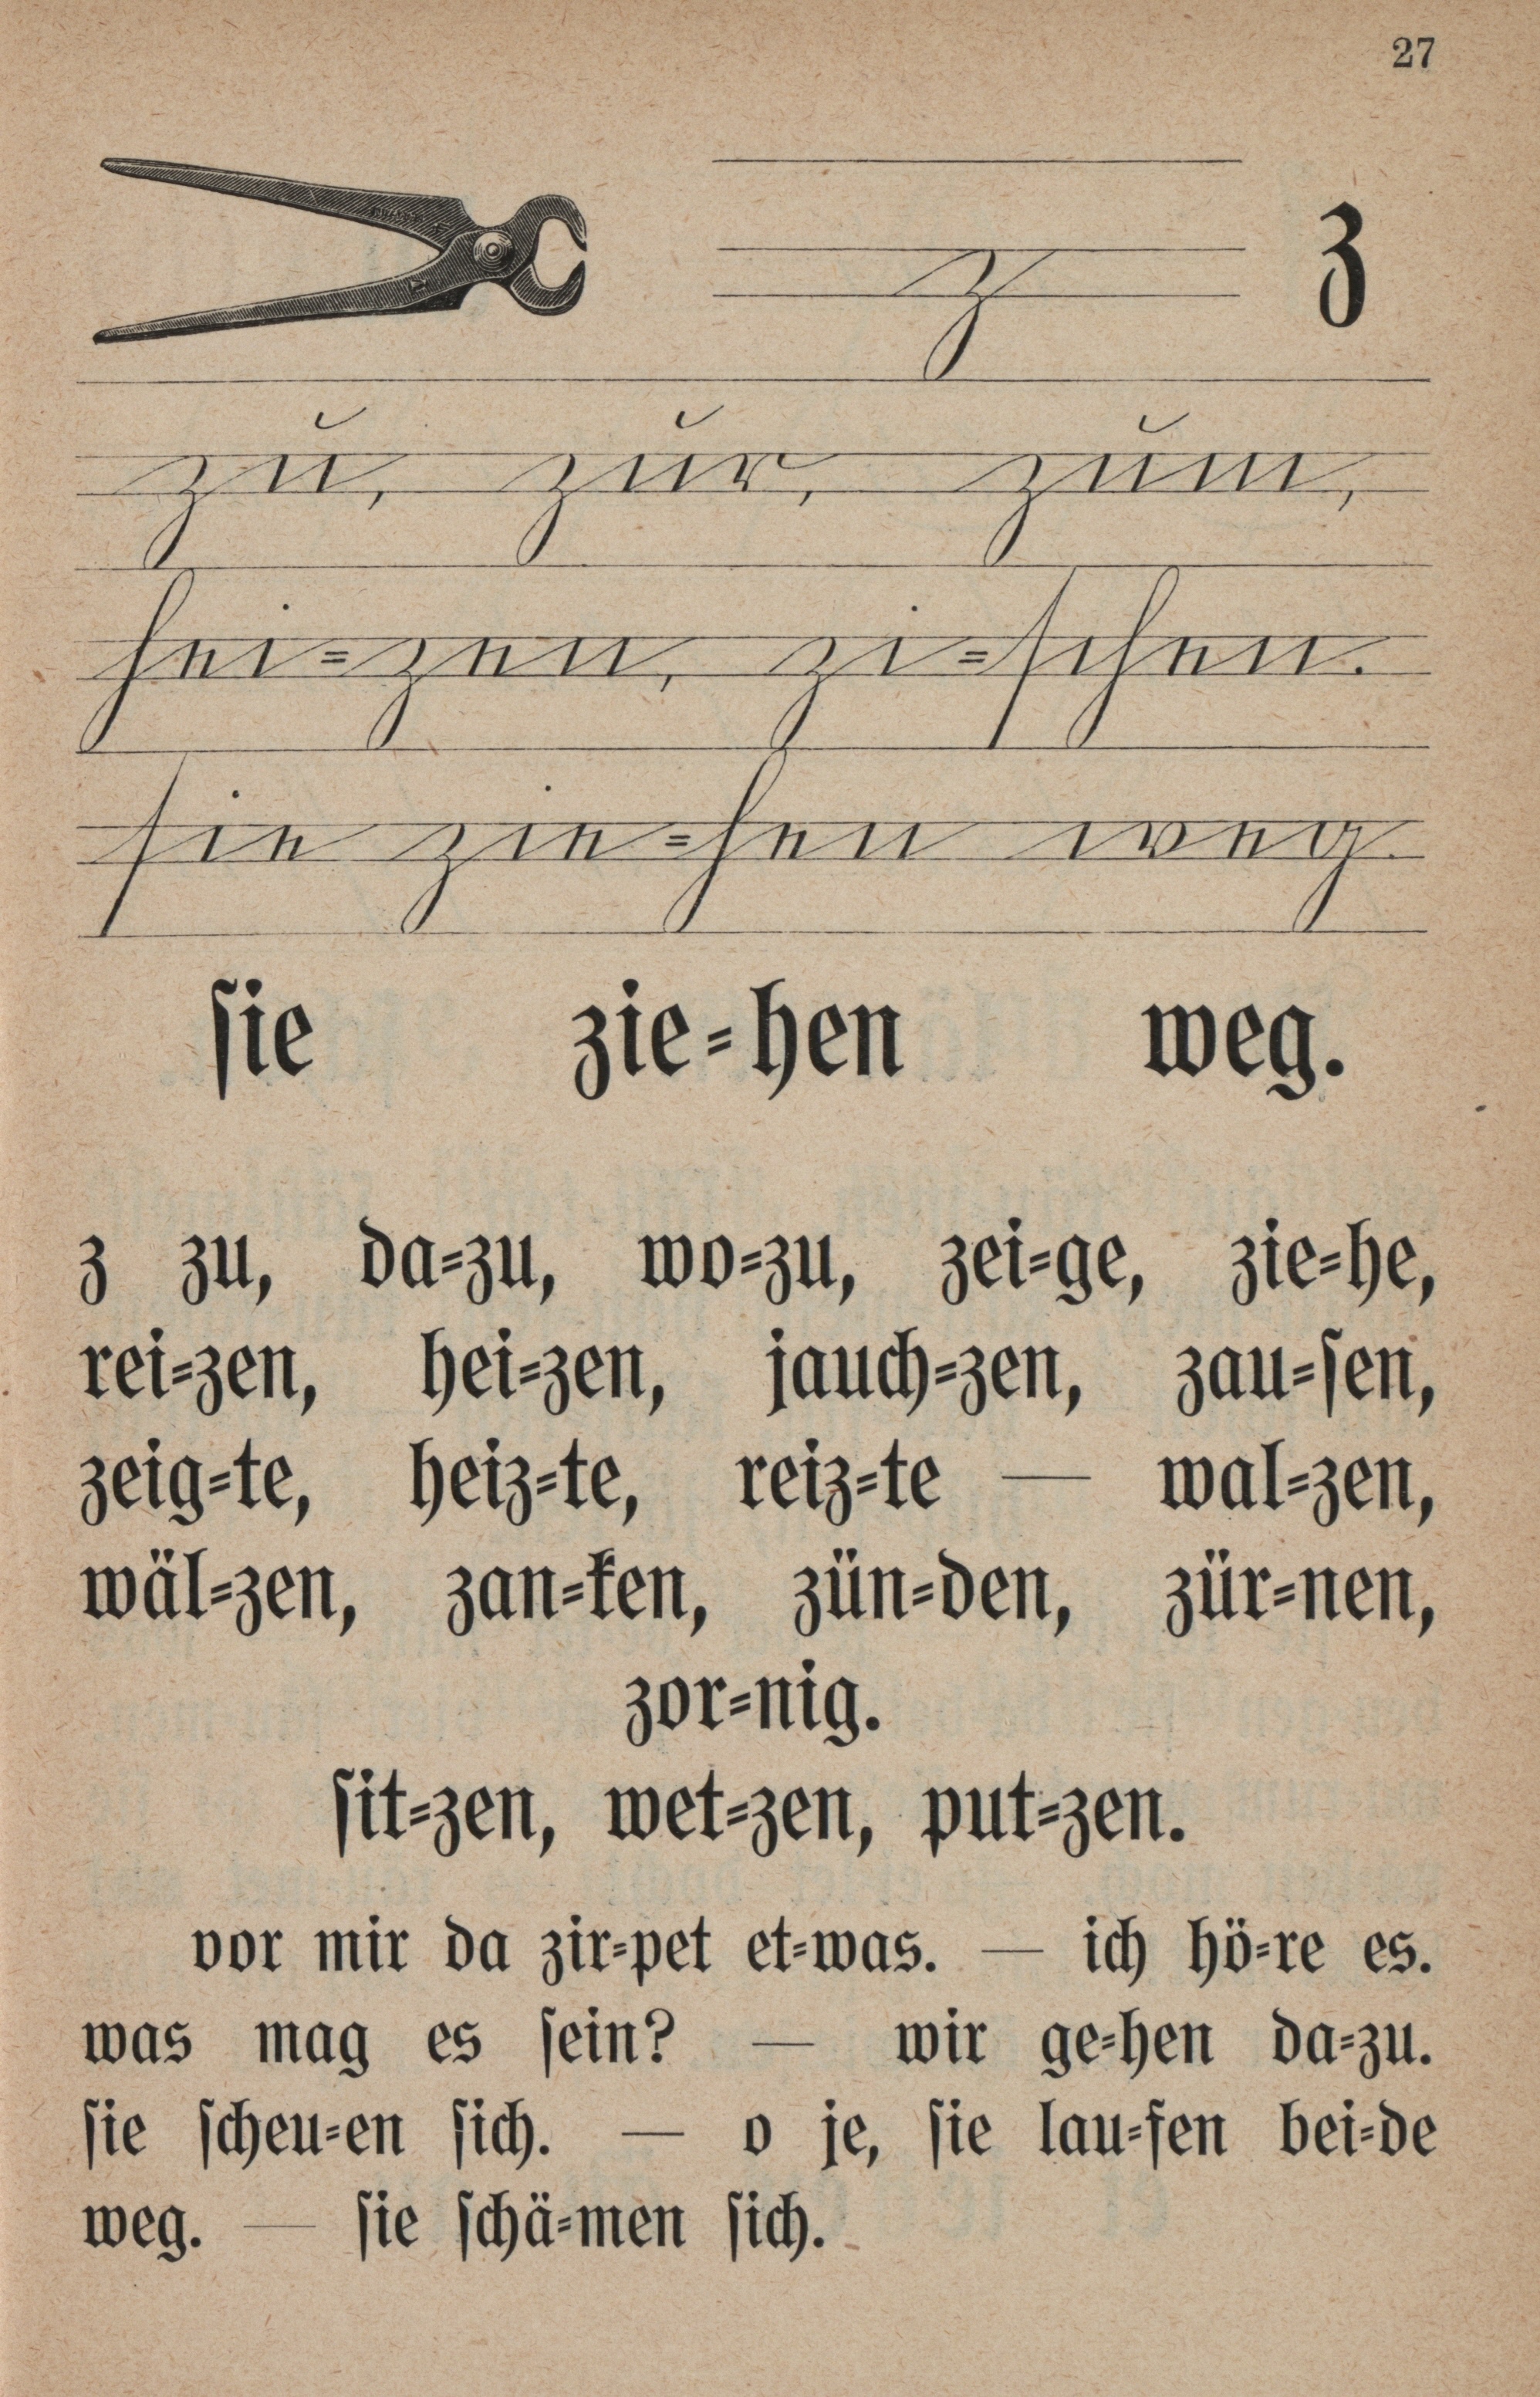 27
z z
zu, zur, zum,
hei⸗zen, zi⸗schen.
sie zie⸗hen weg.
ſie zie⸗hen weg.
z zu, da⸗zu, wo⸗zu, zei⸗ge, zie⸗he,
rei⸗zen, hei⸗zen, jauch⸗zen, zau⸗ſen,
zeig⸗te, heiz⸗te, reiz⸗te — wal⸗zen,
wäl⸗zen, zan⸗ken, zün⸗den, zür⸗nen,
zor⸗nig.
ſit⸗zen, wet⸗zen, put⸗zen.
vor mir da zir⸗pet et⸗was. — ich hö⸗re es.
was mag es ſein? — wir ge⸗hen da⸗zu.
ſie ſcheu⸗en ſich. — o je, ſie lau⸗fen bei⸗de
weg. — ſie ſchä⸗men ſich.